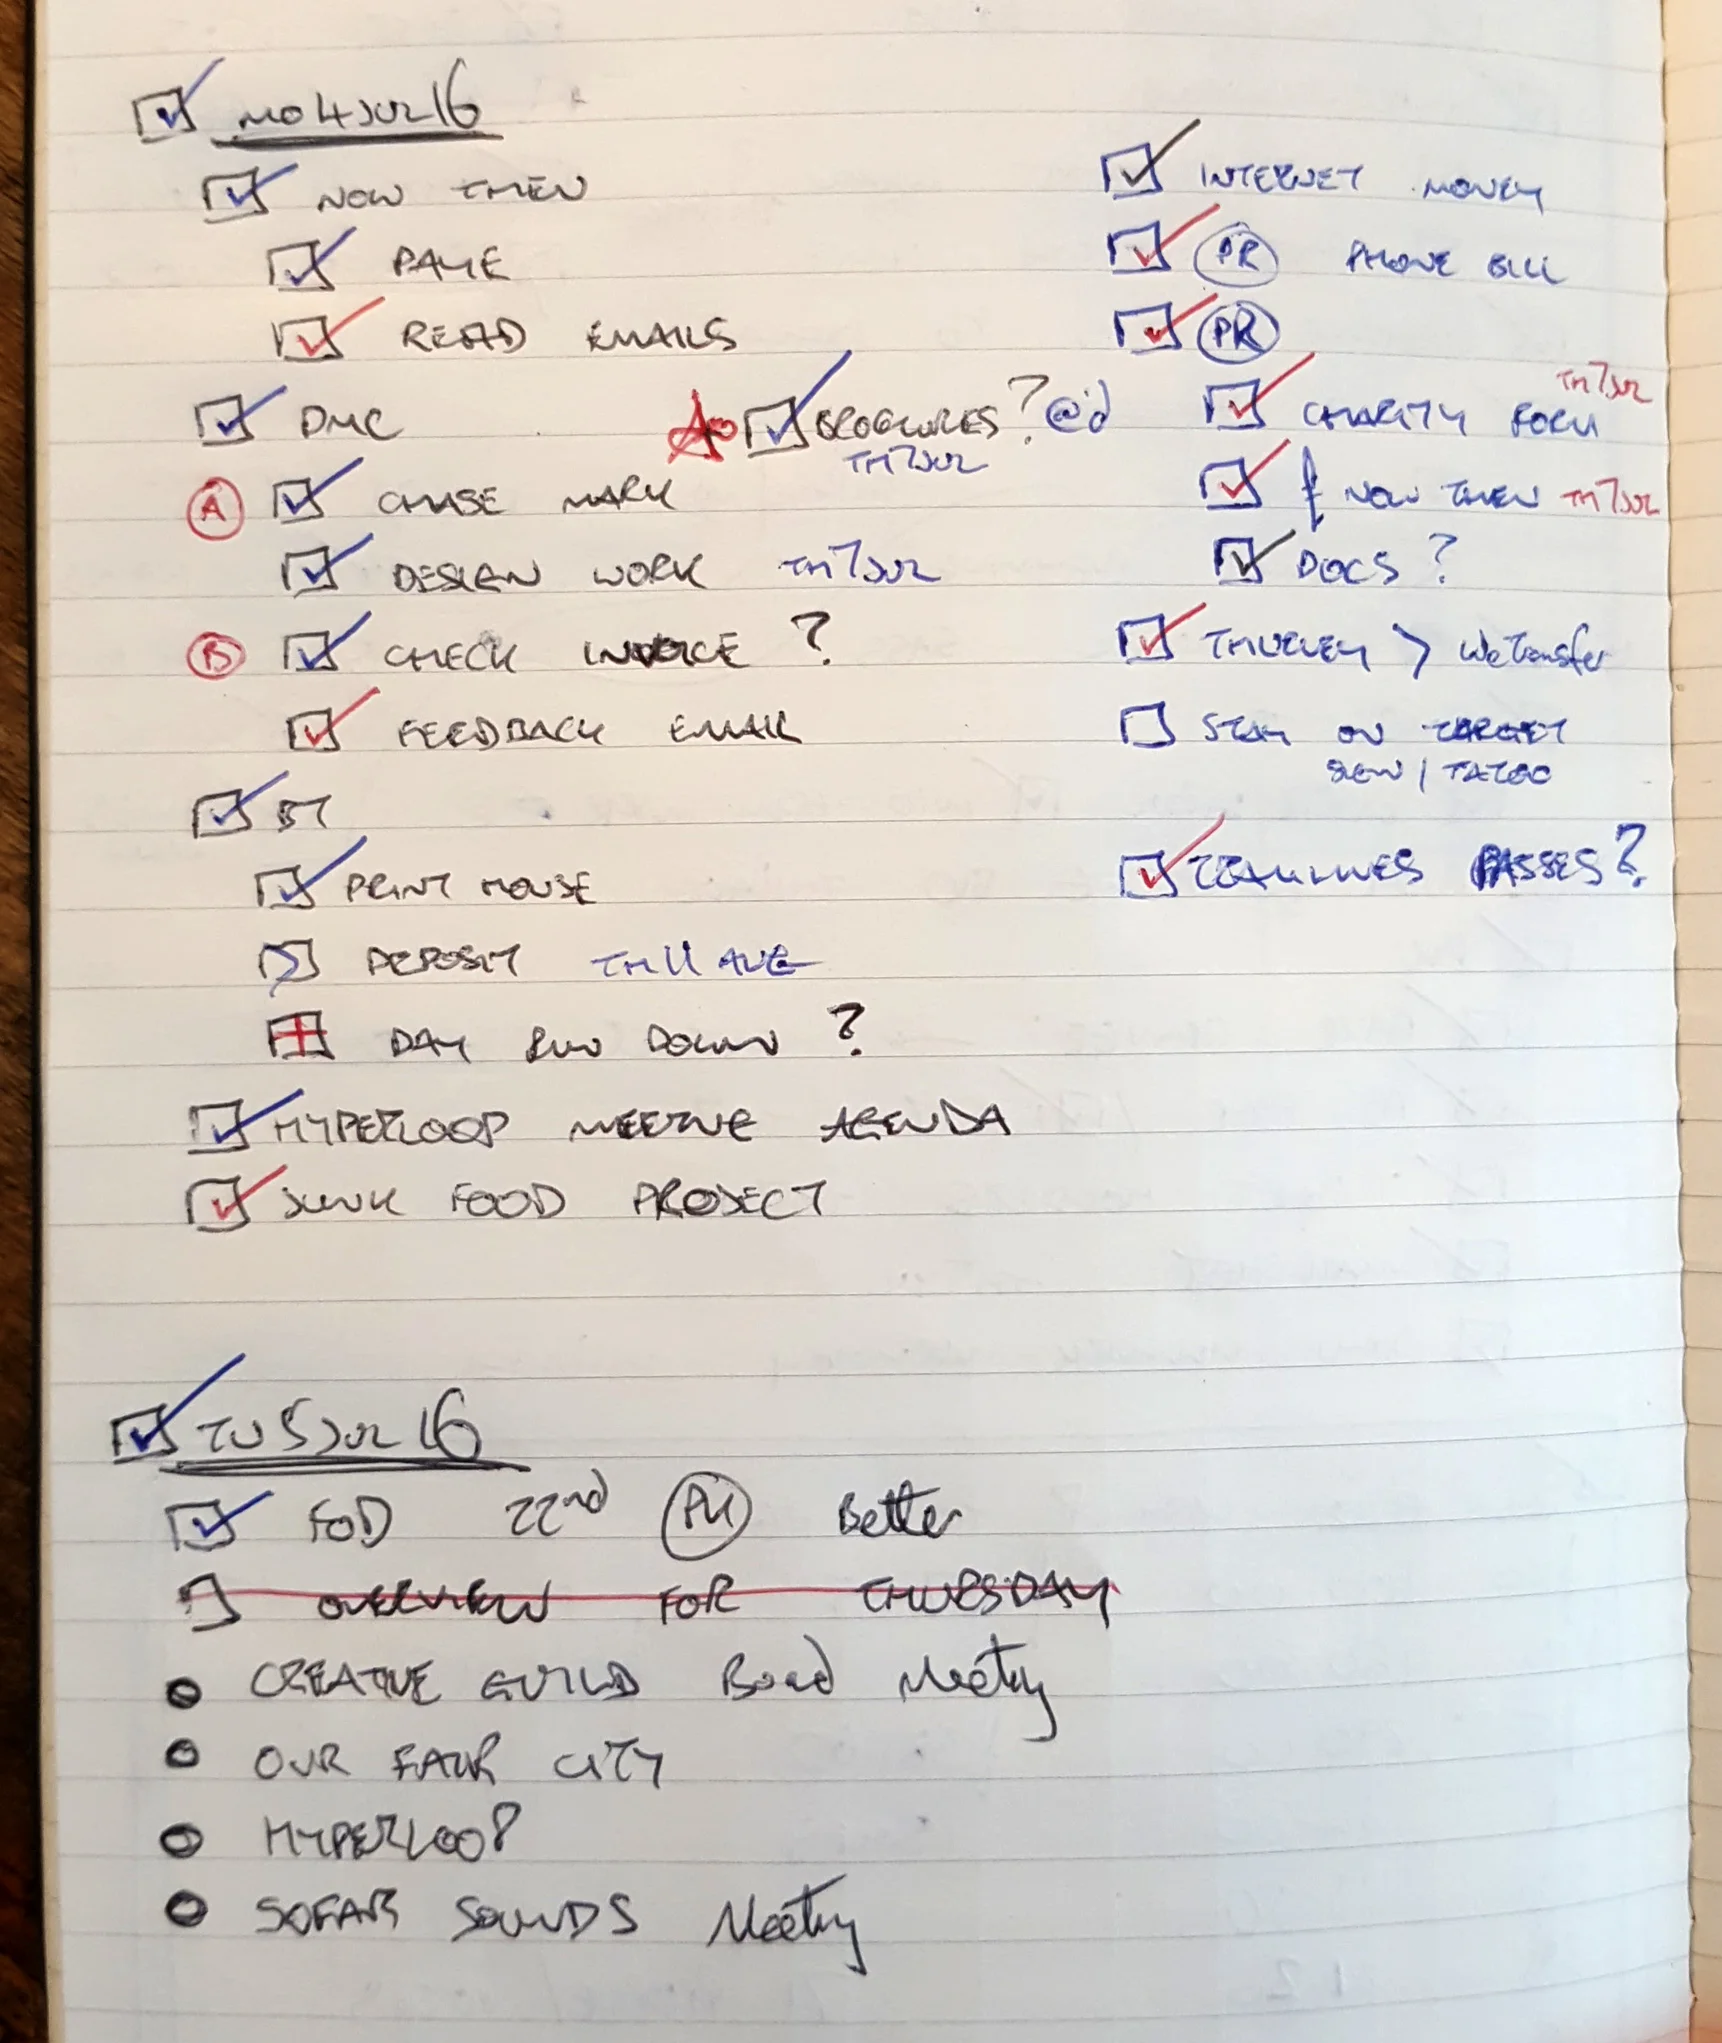 MO 4 JUL 16
NOW THEN
PAYE
READ EMAILS
DMC
BROCHURES? @'d
TH7JUL
A CHASE MARK
DESIGN WORK TH7JUL
B CHECK INVOICE ?
FEEDBACK EMAIL
BT
PRINT HOUSE
DEPOSIT TH11 AUG
DAY RUN DOWN ?
HYPERLOOP MEETING AGENDA
JUNK FOOD PROJECT
INTERNET MONEY
PR PHONE BILL
PR
CHARITY FORM TH7JUL
£ NOW THEN TH7JUL
DOCS ?
> WeTransfer
STAY ON TARGET
SEW /
TRAMLINES PASSES?
TU 5 JUL 16
FOD 22nd PM Better
OVERVIEW FOR THURSDAY
CREATIVE GUILD Board Meeting
OUR FAIR CITY
HYPERLOOP
SOFAR SOUNDS Meeting